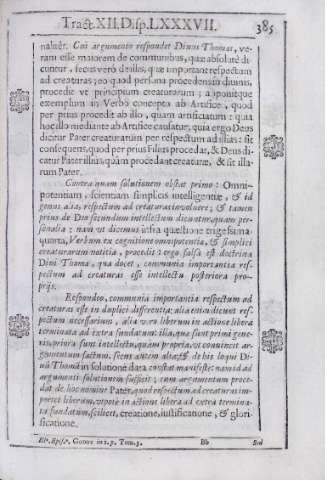 Tract. XII. Disp. LXXXVII. 385
naliter. Cui argumento respondet Divus Thomas, ve-
ram esse maiorem de communibus, quæ absolutè di-
cuntur, secus verò de illis, quæ important respectum
ad creaturas; eo quòd persona procedens in divinis,
procedit vt principium creaturarum; aponitque
exemplum in Verbo concepto ab Artifice, quod
per prius procedit ab illo, quàm artificiatum: quia
hoc illo mediante ab Artifice causatur, quia ergo Deus
dicitur Pater creaturarum per respectum ad illas: sit
consequens, quod per prius Filius procedat, & Deus di-
catur Pater illius, quàm procedant creaturæ, & sit illa-
rum Pater.
Contra unam solutionem obstat primò: Omni-
potentiam, scientiam simplicis intelligentiæ, & id
genus alia, respectum ad creaturas involvere; & tamen
prius de Deo secundum intellectum dicuntur, quàm per-
sonalia: nam ut dicemus infra quæstione trigesima-
quarta, Verbum ex cognitione omnipotentia, & simplici
creaturarum notitia, procedit: ergo falsa est doctrina
Divi Thomæ, qua docet, communia importantia res-
pectum ad creaturas esse intellectu posteriora pro-
prijs.
Respondeo, communia importantia respectum ad
creaturas esse in duplici differentia: alia enim dicunt res-
pectum necessarium, alia verò liberum in actione libera
terminata ad extra fundatum: illa, quæ sunt primi gene-
ris, priora sunt intellectu, quàm propria, ut convincit ar-
gumentum factum. secus autem alia; & de his loqui Di-
vum Thomam in solutione data constat manifestè: nam id ad
argumenti solutionem sufficit; cum argumentum proce-
dat de hoc nomine Pater, quod respectum ad creaturas im-
portet liberum, utpotè in actione libera ad extra termina-
ta fundatum, scilicet, creatione, iustificatione, & glori-
ficatione.
Bb Sol